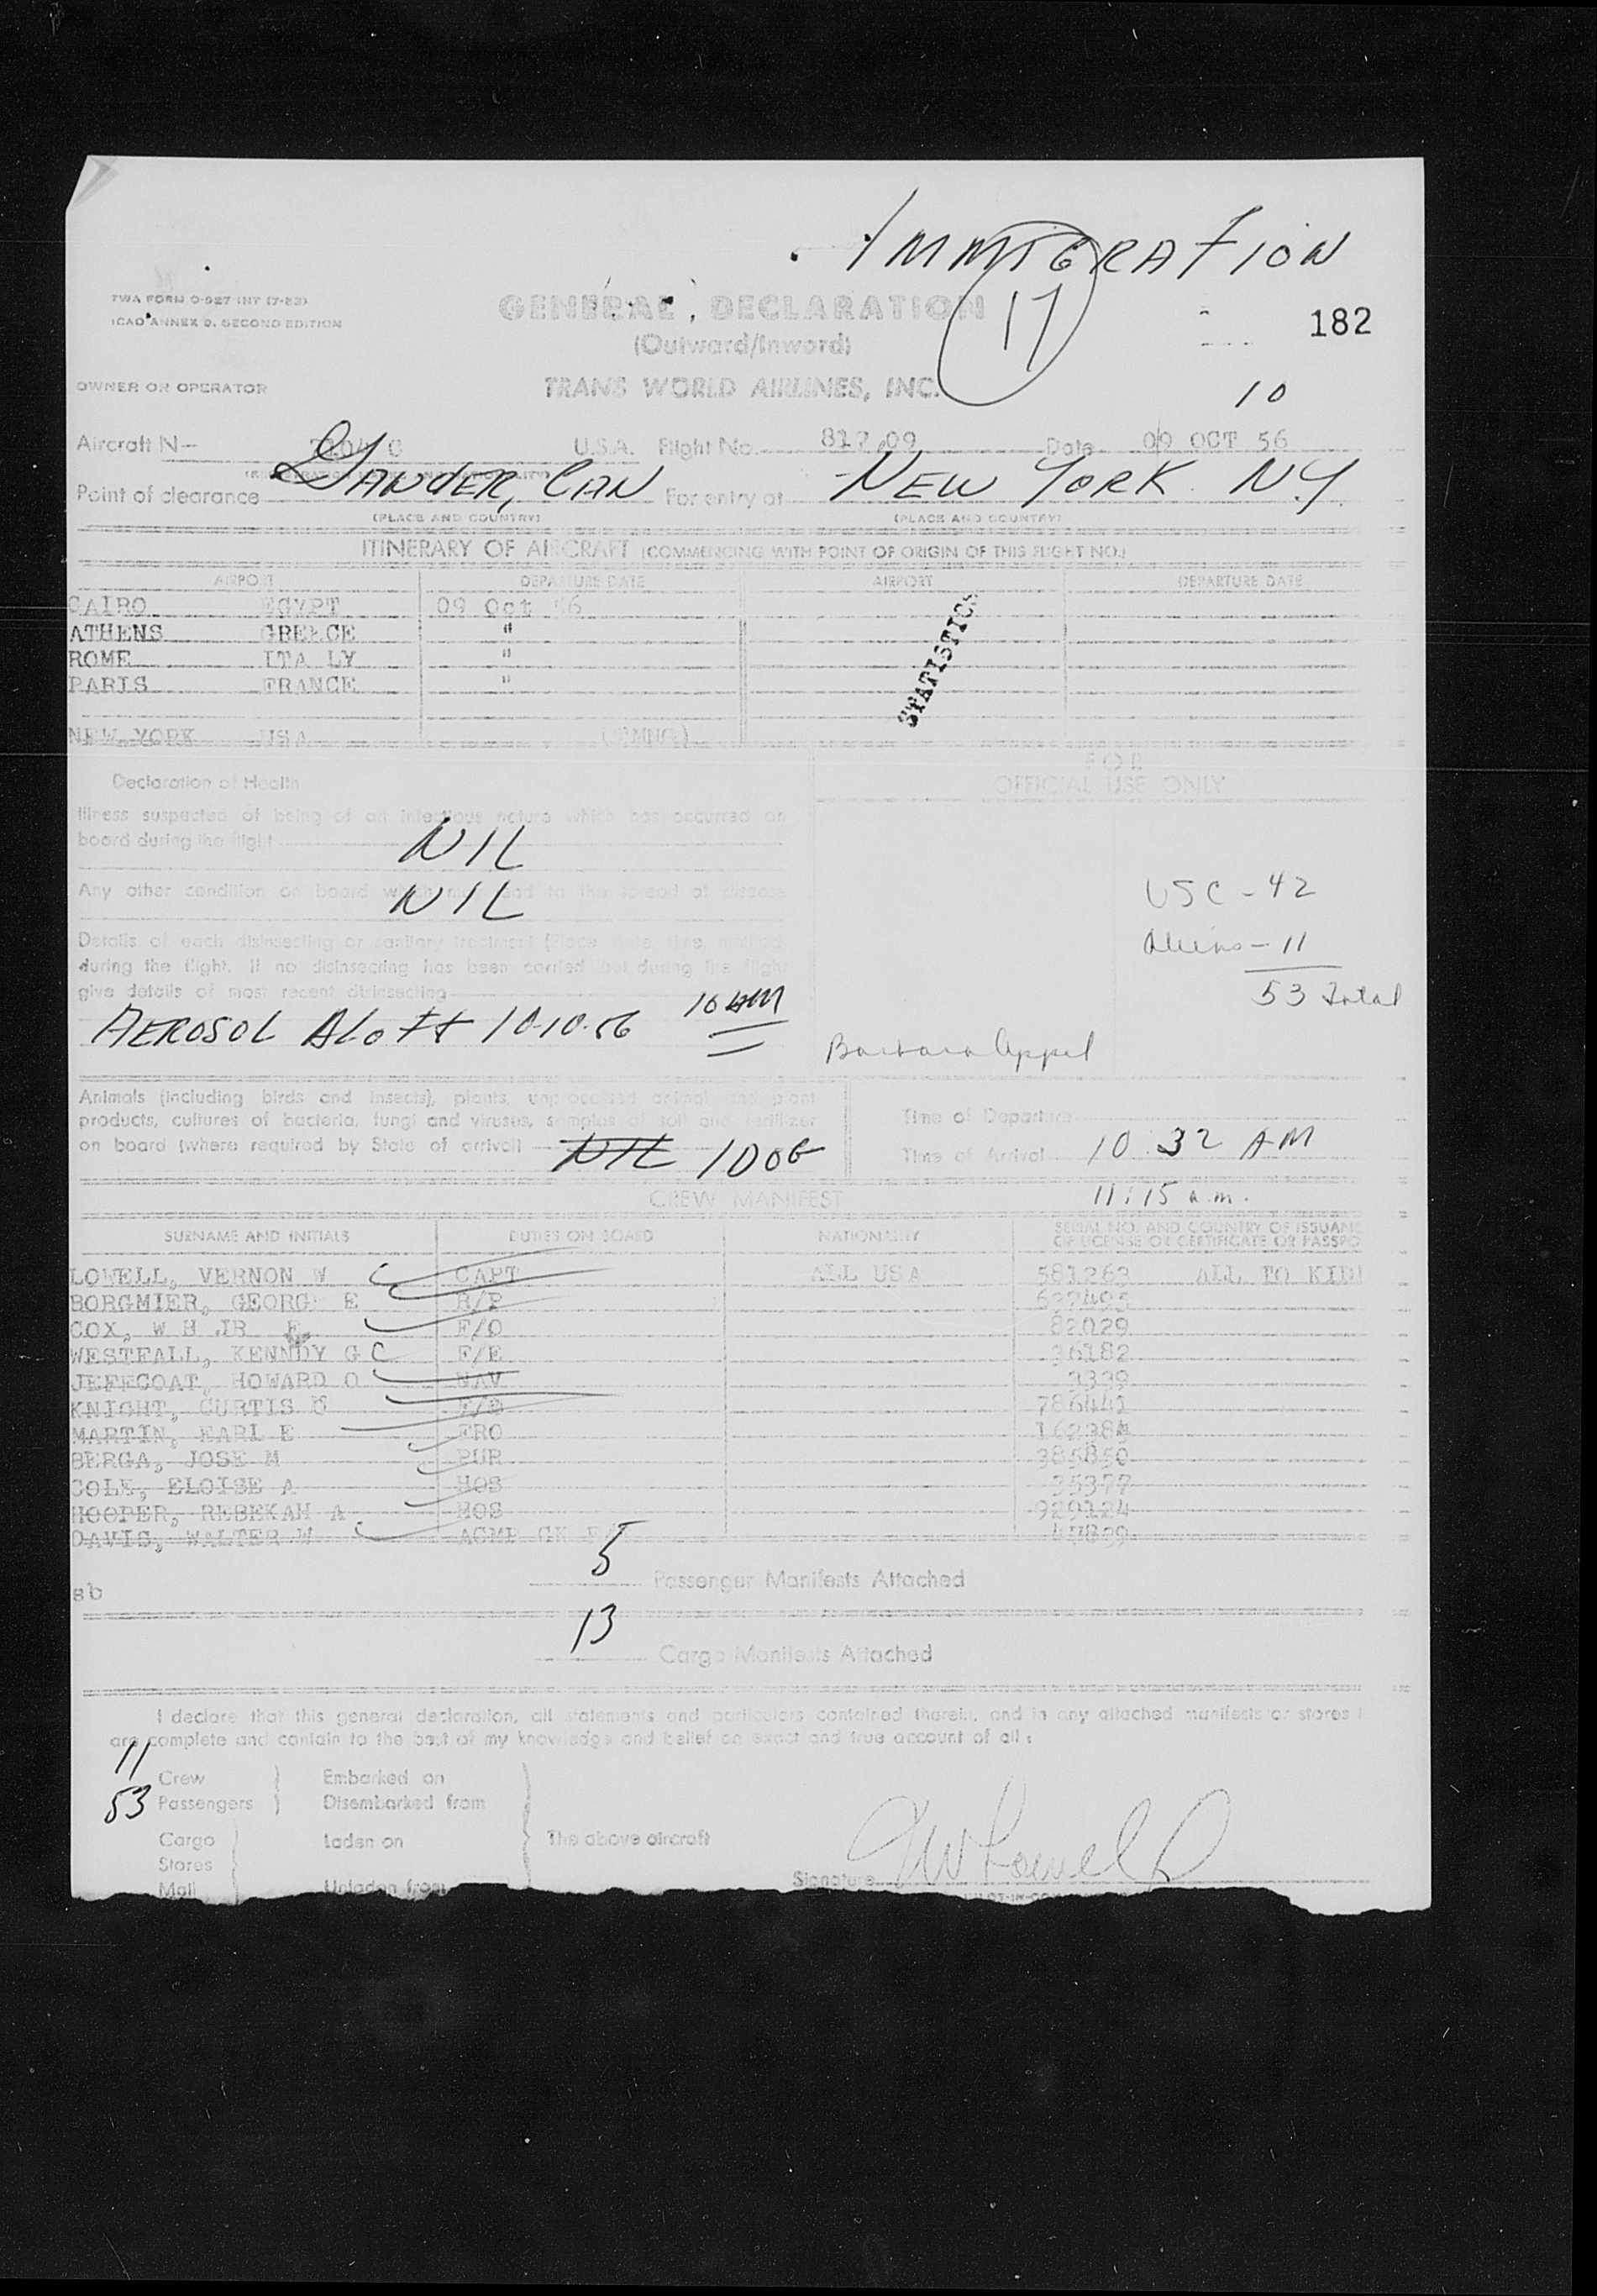 IMMIGRATION
17
TWA FORM O-927-INT (7-53)
ICAO ANNEX 9. SECOND EDITION
GENERAL DECLARATION
182
(Outward/Inward)
OWNER OR OPERATOR
TRANS WORLD AIRLINES, INC.
10
Aircraft N— U.S.A. Flight No. 817/09 Date 09 OCT 56
Point of clearance GANDER, CAN For entry at NEW YORK NY
(PLACE AND COUNTRY) (PLACE AND COUNTRY)
ITINERARY OF AIRCRAFT (COMMENCING WITH POINT OF ORIGIN OF THIS FLIGHT NO.)
AIRPORT DEPARTURE DATE AIRPORT DEPARTURE DATE
CAIRO EGYPT 09 Oct 56
ATHENS GREECE "
ROME ITA LY "
PARIS FRANCE "
STATISTICS
NEW YORK USA
FOR
OFFICIAL USE ONLY
Declaration of Health
Illness suspected of being of an infectious nature which has occurred on
board during the flight NIL
Any other condition on board which may lead to the spread of disease
NIL
USC - 42
Aliens - 11
53 Total
Details of each disinsecting or sanitary treatment (Place, date, time, method)
during the flight. If no disinsecting has been carried out during the flight
give details of most recent disinsecting
AEROSOL Aloft 10-10-56 10 AM
Barbara Appel
Animals (including birds and insects), plants, unprocessed animal and plant
products, cultures of bacteria, fungi and viruses, samples of soil and fertilizer
on board (where required by State of arrival) NIL 1 DOG
Time of Departure
Time of Arrival 10 32 AM
11:15 a.m.
CREW MANIFEST
SURNAME AND INITIALS DUTIES ON BOARD NATIONALITY SERIAL NO. AND COUNTRY OF ISSUANC
OF LICENSE OR CERTIFICATE OR PASSPO
LOWELL, VERNON W CAPT ALL USA 581263 ALL TO KIDL
BORGMIER, GEORGE E R/P 637495
COX, W H JR F/O 82029
WESTFALL, KENNDY G F/E 36182
JEFFCOAT, HOWARD O NAV 3339
KNIGHT, CURTIS 786441
MARTIN, EARL E FRO
BERGA, JOSE M PUR 385850
COLE, ELOISE A HOS 35377
HOOPER, REBEKAH A HOS 929124
DAVIS, WALTER W ACMP CK
sb
5 Passenger Manifests Attached
13
Cargo Manifests Attached
I declare that this general declaration, all statements and particulars contained therein, and in any attached manifests or stores l
are complete and contain to the best of my knowledge and belief an exact and true account of all :
11 Crew Embarked on
53 Passengers Disembarked from
Cargo Laden on The above aircraft
Stores
Signature VW Lowell
Mail Unladen from